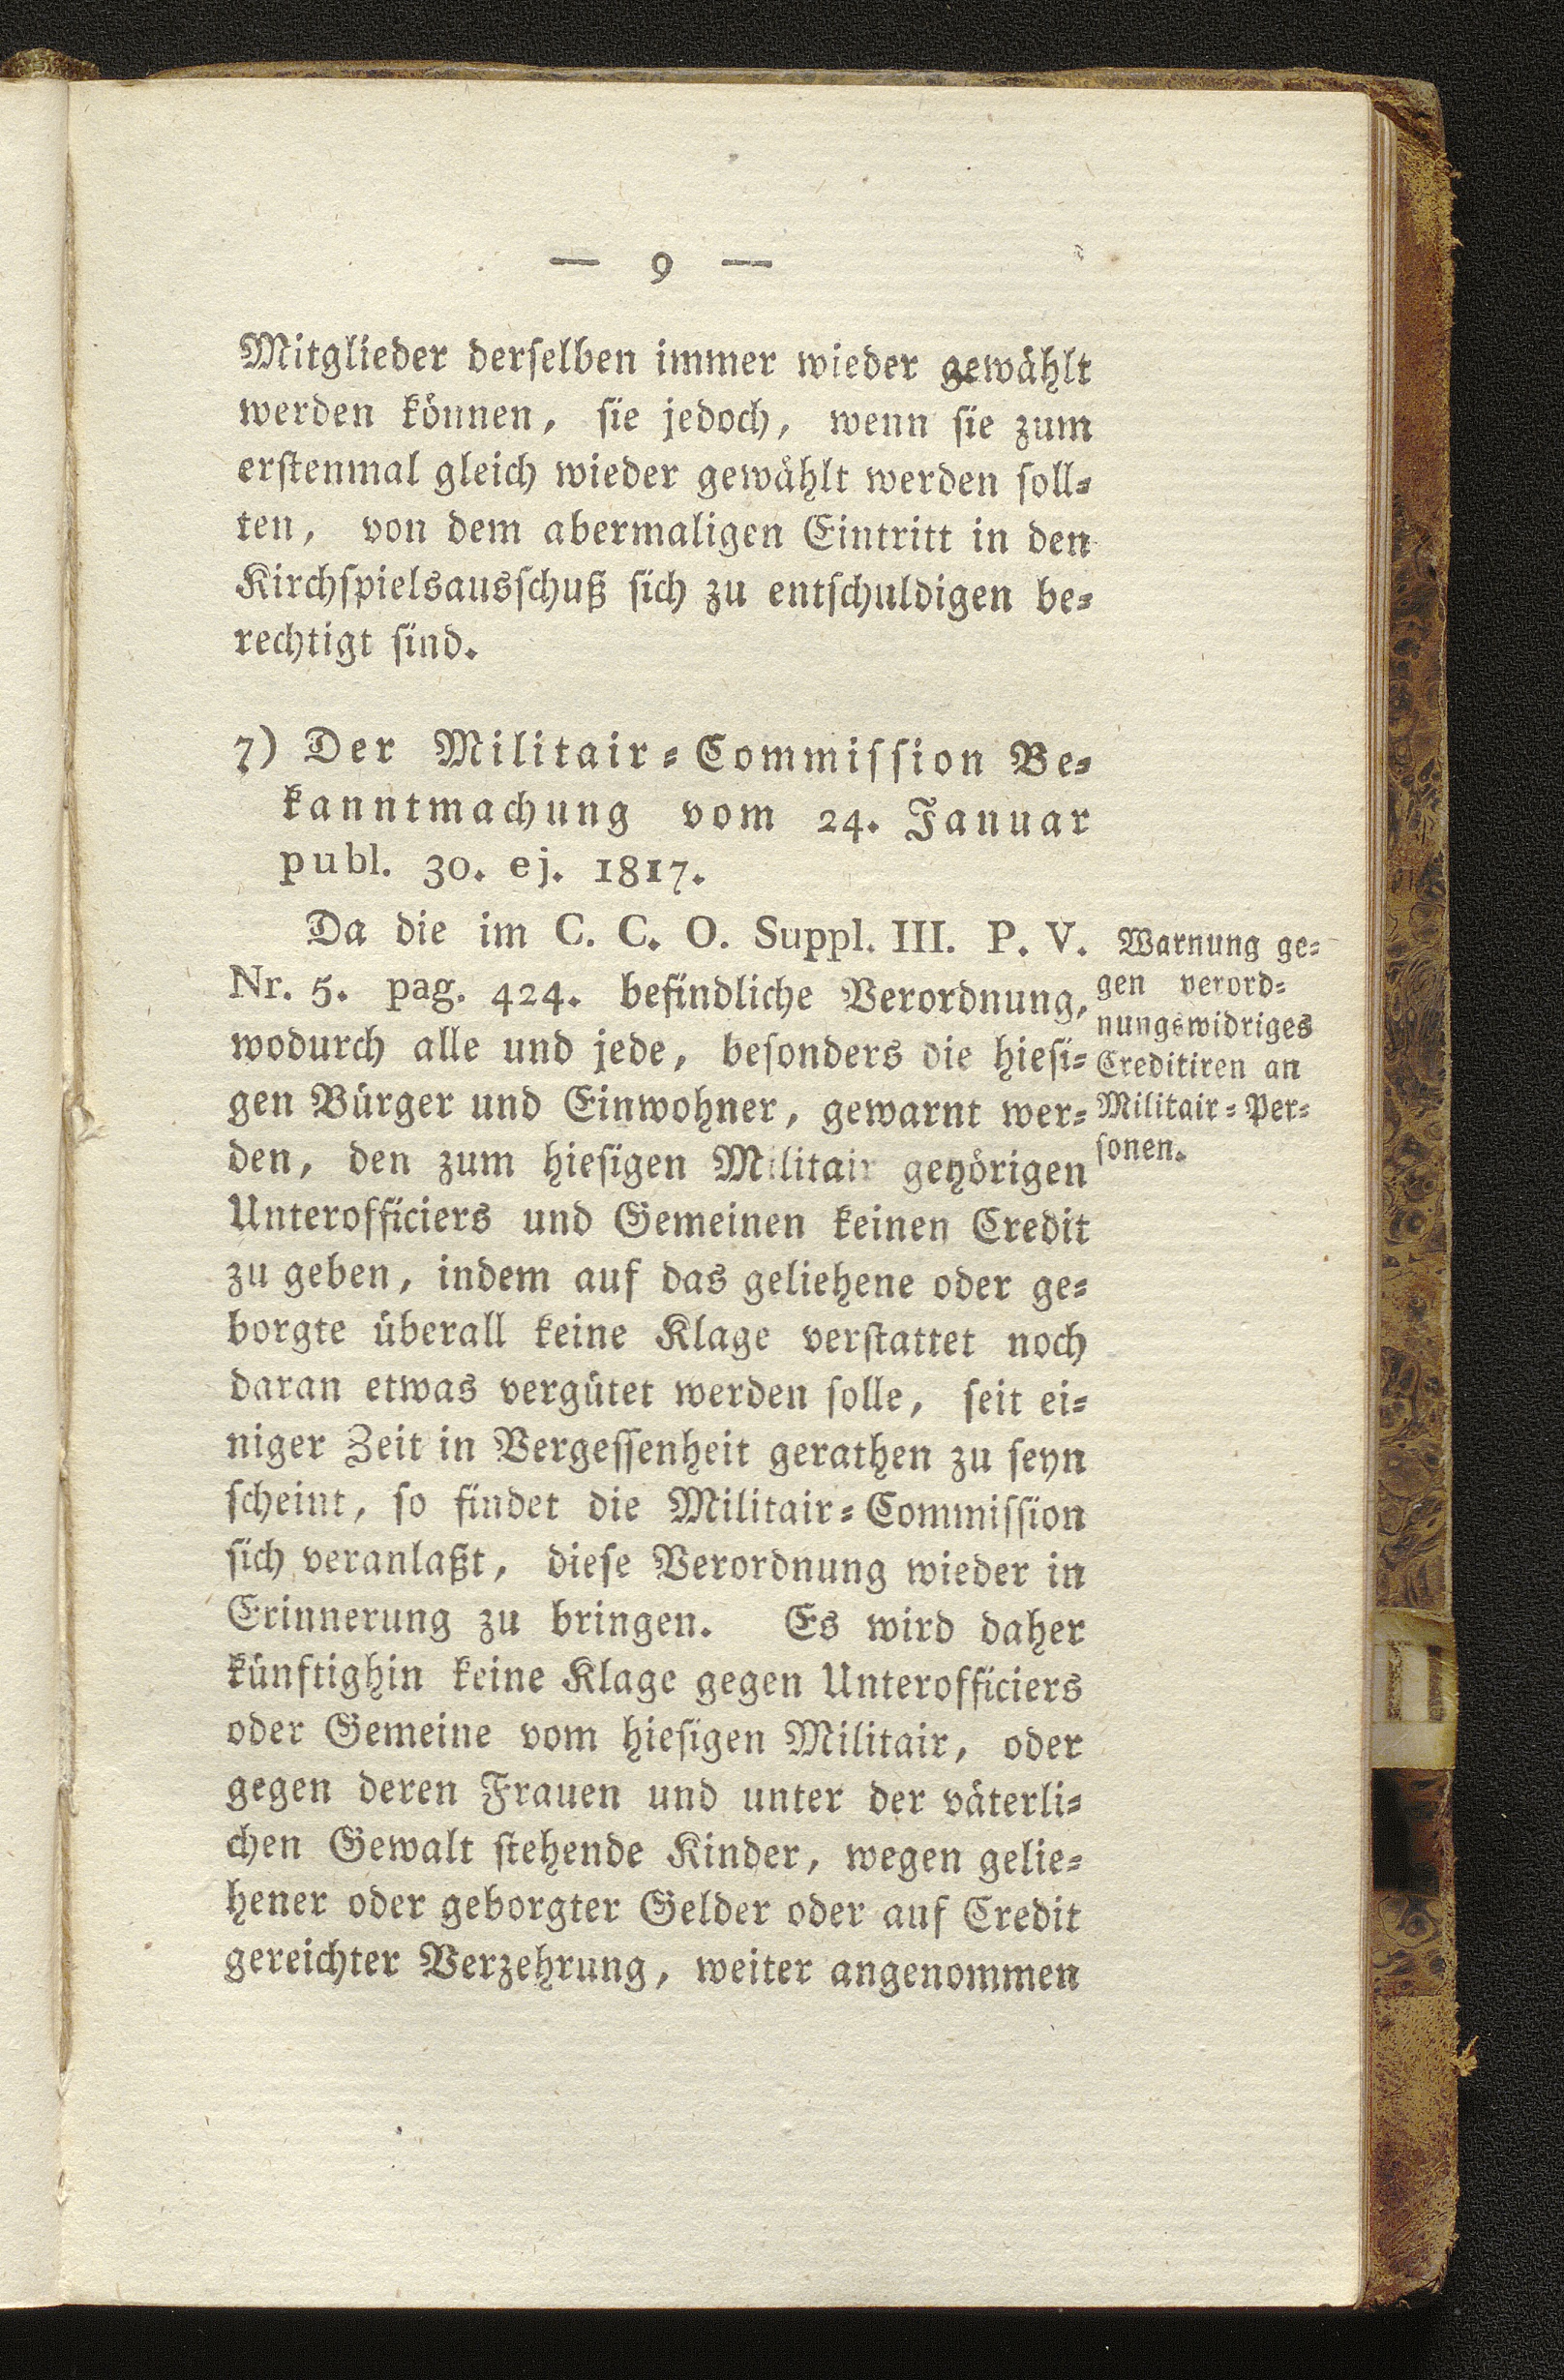 — 9 —
Mitglieder derſelben immer wieder gewählt
werden können, ſie jedoch, wenn ſie zum
erſtenmal gleich wieder gewählt werden ſoll⸗
ten, von dem abermaligen Eintritt in den
Kirchſpielsausſchuß ſich zu entſchuldigen be⸗
rechtigt ſind.
7) Der Militair⸗Commiſſion Be⸗
kanntmachung vom 24. Januar
publ. 30. ej. 1817.
Da die im C. C. O. Suppl. III. P. V.
Nr. 5. pag. 424. befindliche Verordnung,
wodurch alle und jede, beſonders die hieſi⸗
gen Bürger und Einwohner, gewarnt wer⸗
den, den zum hieſigen Militair gehörigen
Unterofficiers und Gemeinen keinen Credit
zu geben, indem auf das geliehene oder ge⸗
borgte überall keine Klage verſtattet noch
daran etwas vergütet werden ſolle, ſeit ei⸗
niger Zeit in Vergeſſenheit gerathen zu ſeyn
ſcheint, ſo findet die Militair⸗Commiſſion
ſich veranlaßt, dieſe Verordnung wieder in
Erinnerung zu bringen. Es wird daher
künftighin keine Klage gegen Unterofficiers
oder Gemeine vom hieſigen Militair, oder
gegen deren Frauen und unter der väterli⸗
chen Gewalt ſtehende Kinder, wegen gelie⸗
hener oder geborgter Gelder oder auf Credit
gereichter Verzehrung, weiter angenommen
Warnung ge⸗
gen verord⸗
nungswidriges
Creditiren an
Militair⸗Per⸗
ſonen.